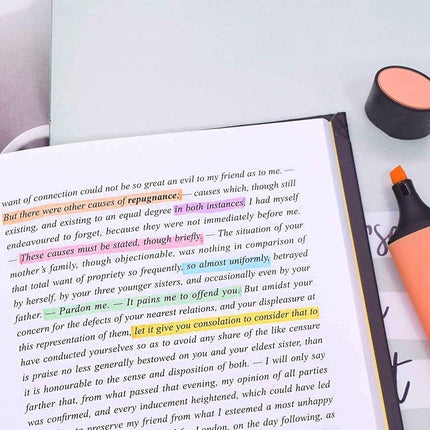 want of connection could not be so great an evil to my friend as to me. —
But there were other causes of repugnance; — causes which, though still
existing, and existing to an equal degree in both instances, I had myself
endeavoured to forget, because they were not immediately before me.
— These causes must be stated, though briefly. — The situation of your
mother's family, though objectionable, was nothing in comparison of
that total want of propriety so frequently, so almost uniformly, betrayed
by herself, by your three younger sisters, and occasionally even by your
father. — Pardon me. — It pains me to offend you. But amidst your
concern for the defects of your nearest relations, and your displeasure at
this representation of them, let it give you consolation to consider that to
have conducted yourselves so as to avoid any share of the like censure
is praise no less generally bestowed on you and your eldest sister, than
it is honourable to the sense and disposition of both. — I will only say
farther that, from what passed that evening, my opinion of all parties
was confirmed, and every inducement heightened, which could have led
to preserve my friend from what I esteemed a most unhappy
for London, on the day following, as